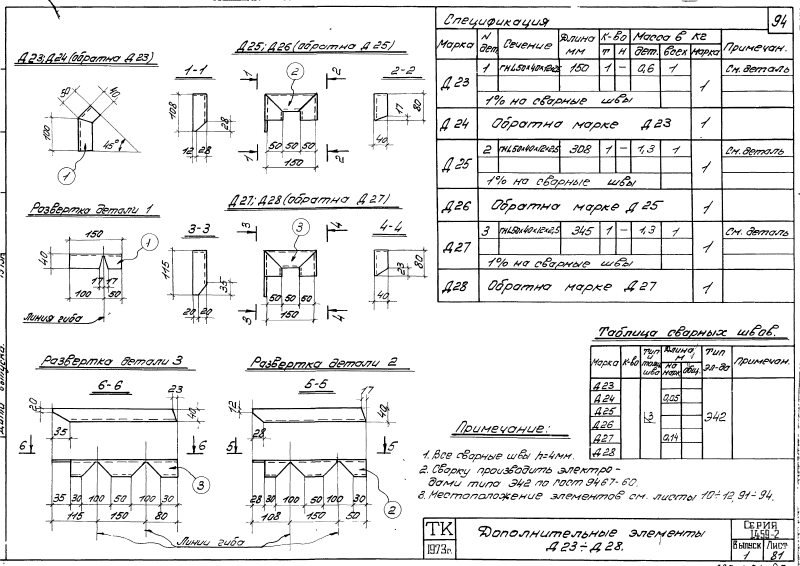 94
Д23; Д24 (обратна Д23)
50
40
100
45°
1
1-1
108
28
12 28
Д25; Д26 (обратна Д25)
1 2
2
50 50 50
150
1 2
2-2
80
17
40
Развертка детали 1
150
1
40
17 17
100 50
Линия гиба
3-3
115
35
20 20
Д27; Д28 (обратна Д27)
3 4
3
50 50 50
150
3 4
4-4
80
23
40
Развертка детали 3
6-6
20
23
40
35
6 6
3
35 30 100 30 100 30 30
115 150 80
Развертка детали 2
5-5
12
17
40
28
5 5
2
28 30 100 30 100 30
108 150 50
Линии гиба
Спецификация
Марка N дет. Сечение Длина мм К-во Масса в кг Примечан.
т н дет. всех марки
Д23 1 150 1 – 0,6 1 1 См. деталь
1% на сварные швы
Д24 Обратна марке Д23 1
Д25 2 308 1 – 1,3 1 1 См. деталь
1% на сварные швы
Д26 Обратна марке Д25 1
Д27 3 345 1 – 1,3 1 1 См. деталь
1% на сварные швы
Д28 Обратна марке Д27 1
Таблица сварных швов.
Марка К-во Тип и толщ. шва Длина, м Тип эл-да Примечан.
на марк. общ.
Д23
Д24 0,05
Д25
Д26 Э42
Д27 0,14
Д28
Примечание:
1. Все сварные швы h=4мм.
2. Сварку производить электро-
дами типа Э42 по гост 9467-60.
3. Местоположение элементов см. листы 10÷12, 91÷94.
ТК
1973г.
Дополнительные элементы
Д23÷Д28.
Серия
1.459-2
Выпуск Лист
1 81
Дата выпуска.